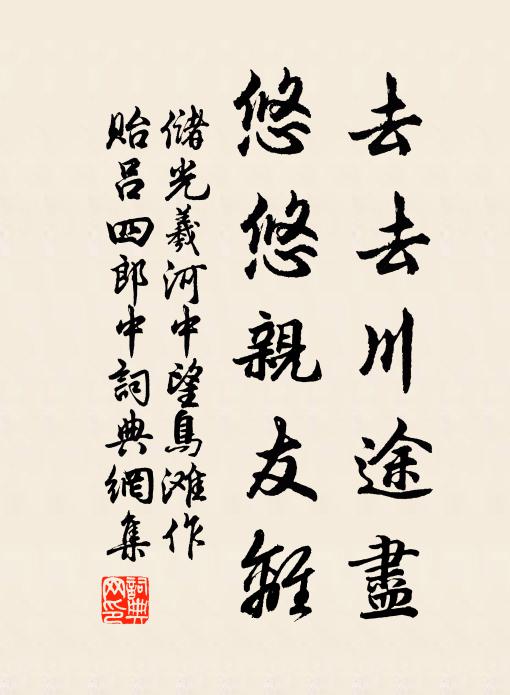 去去川途盡
悠悠親友離
儲光羲河中望鳥滩作
貽呂四郎中詞典網集
詞典網印